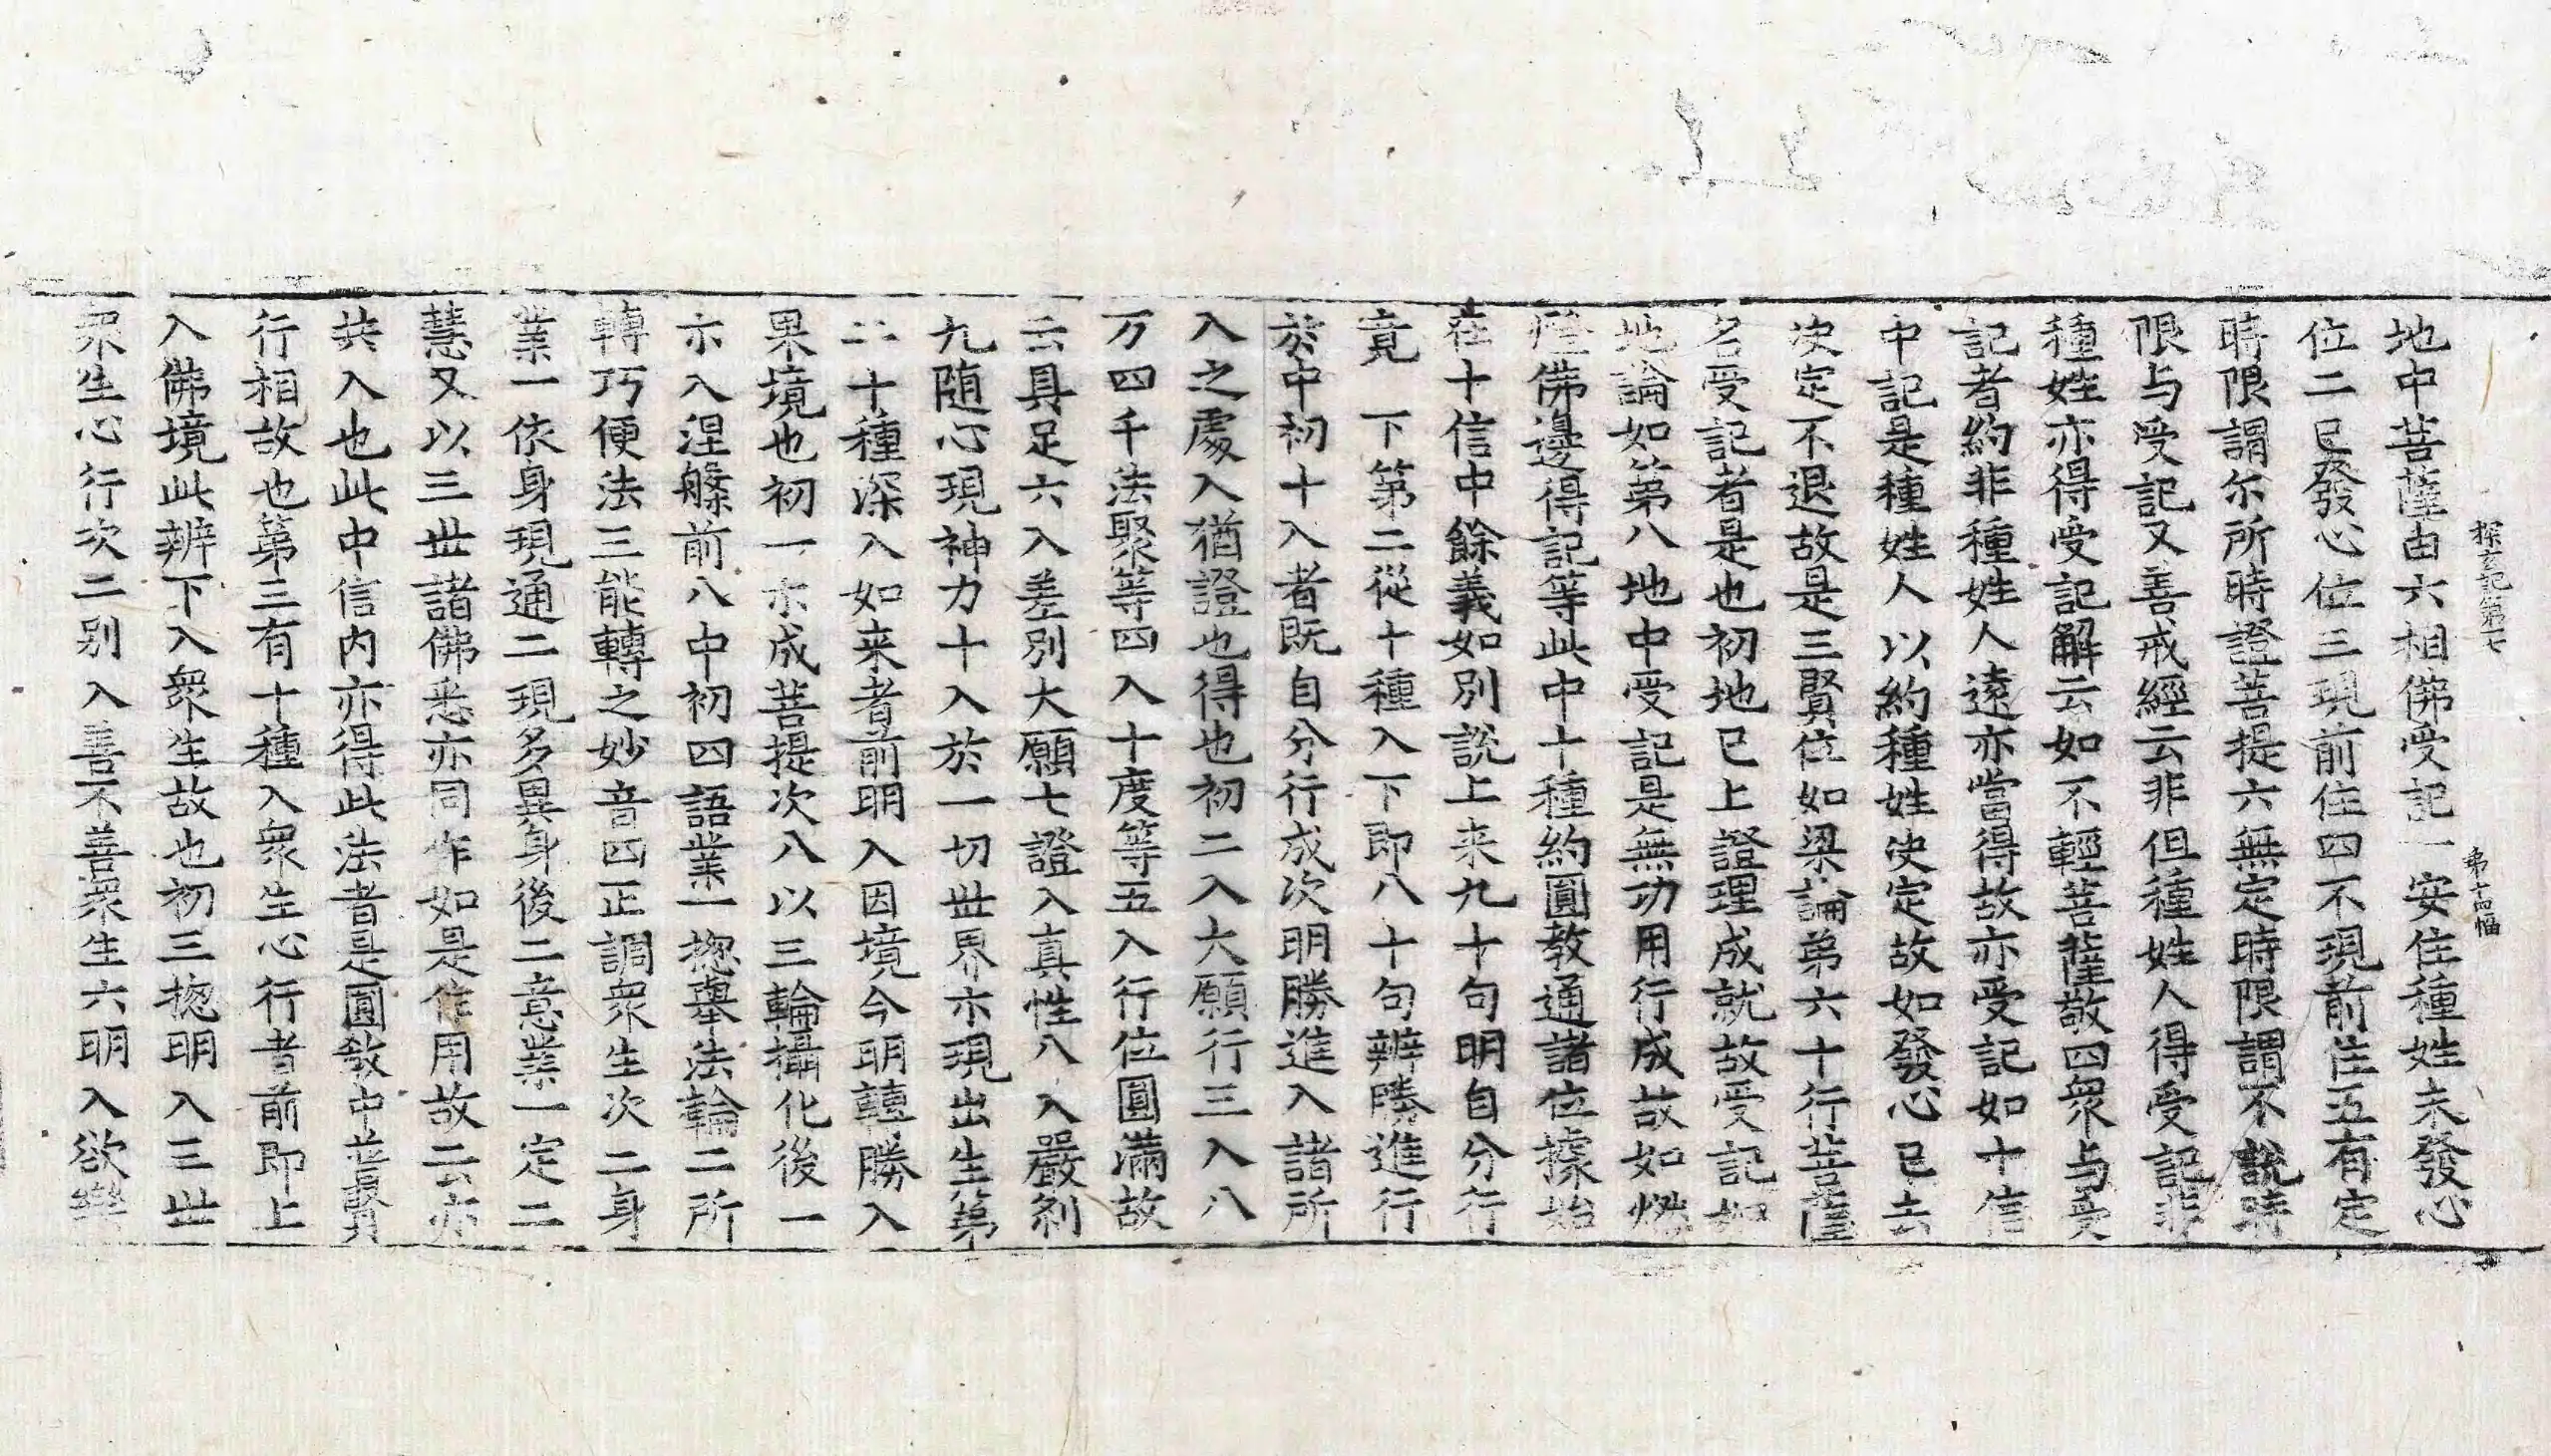 探玄記第七　第十四幅
地中菩薩由六相佛受記一安住種姓未發心
位二已發心位三現前住四不現前住五有定
時限謂尔所時證菩提六無定時限謂不說時
限与受記又善戒經云非但種姓人得受記非
種姓亦得受記解云如不輕菩薩敬四衆与受
記者約非種姓人遠亦當得故亦受記如十信
中記是種姓人以約種姓決定故如發心已去
決定不退故是三賢位如梁論第六十行菩薩
名受記者是也初地已上證理成就故受記如
地論如第八地中受記是無功用行成故如燃
燈佛邊得記等此中十種約圓教通諸位據始
在十信中餘義如別說上来九十句明自分行
竟　下第二從十種入下即八十句辨勝進行
於中初十入者既自分行成次明勝進入諸所
入之處入猶證也得也初二入大願行三入八
万四千法聚等四入十度等五入行位圓滿故
云具足六入差別大願七證入真性八入嚴刹
九随心現神力十入於一切世界示現出生第
二十種深入如来者前明入因境今明轉勝入
果境也初一示成菩提次八以三輪攝化後一
示入涅槃前八中初四語業一揔舉法輪二所
轉巧便法三能轉之妙音四正調衆生次二身
業一依身現通二現多異身後二意業一定二
慧又以三世諸佛悉亦同作如是作用故云亦
共入也此中信内亦得此法者是圓敎中並賢
行相故也第三有十種入衆生心行者前即上
入佛境此辨下入衆生故也初三揔明入三世
衆生心行次二別入善不善衆生六明入欲樂